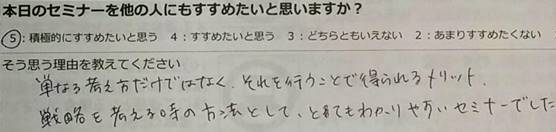 本日のセミナーを他の人にもすすめたいと思いますか？
⑤：積極的にすすめたいと思う　4：すすめたいと思う　3：どちらともいえない　2：あまりすすめたくない
そう思う理由を教えてください
単なる考え方だけではなく、それを行うことで得られるメリット、
戦略を考える時の方法として、とてもわかりやすいセミナーでした